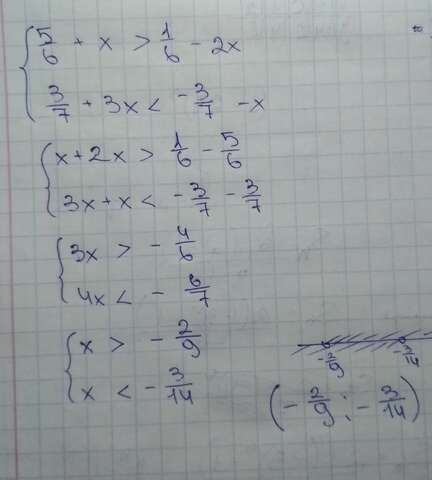 { 5/6 + x > 1/6 - 2x
3/7 + 3x < -3/7 - x
{ x + 2x > 1/6 - 5/6
3x + x < -3/7 - 3/7
{ 3x > -4/6
4x < -6/7
{ x > -2/9
x < -3/14
-2/9 -3/14
(-2/9 ; -3/14)